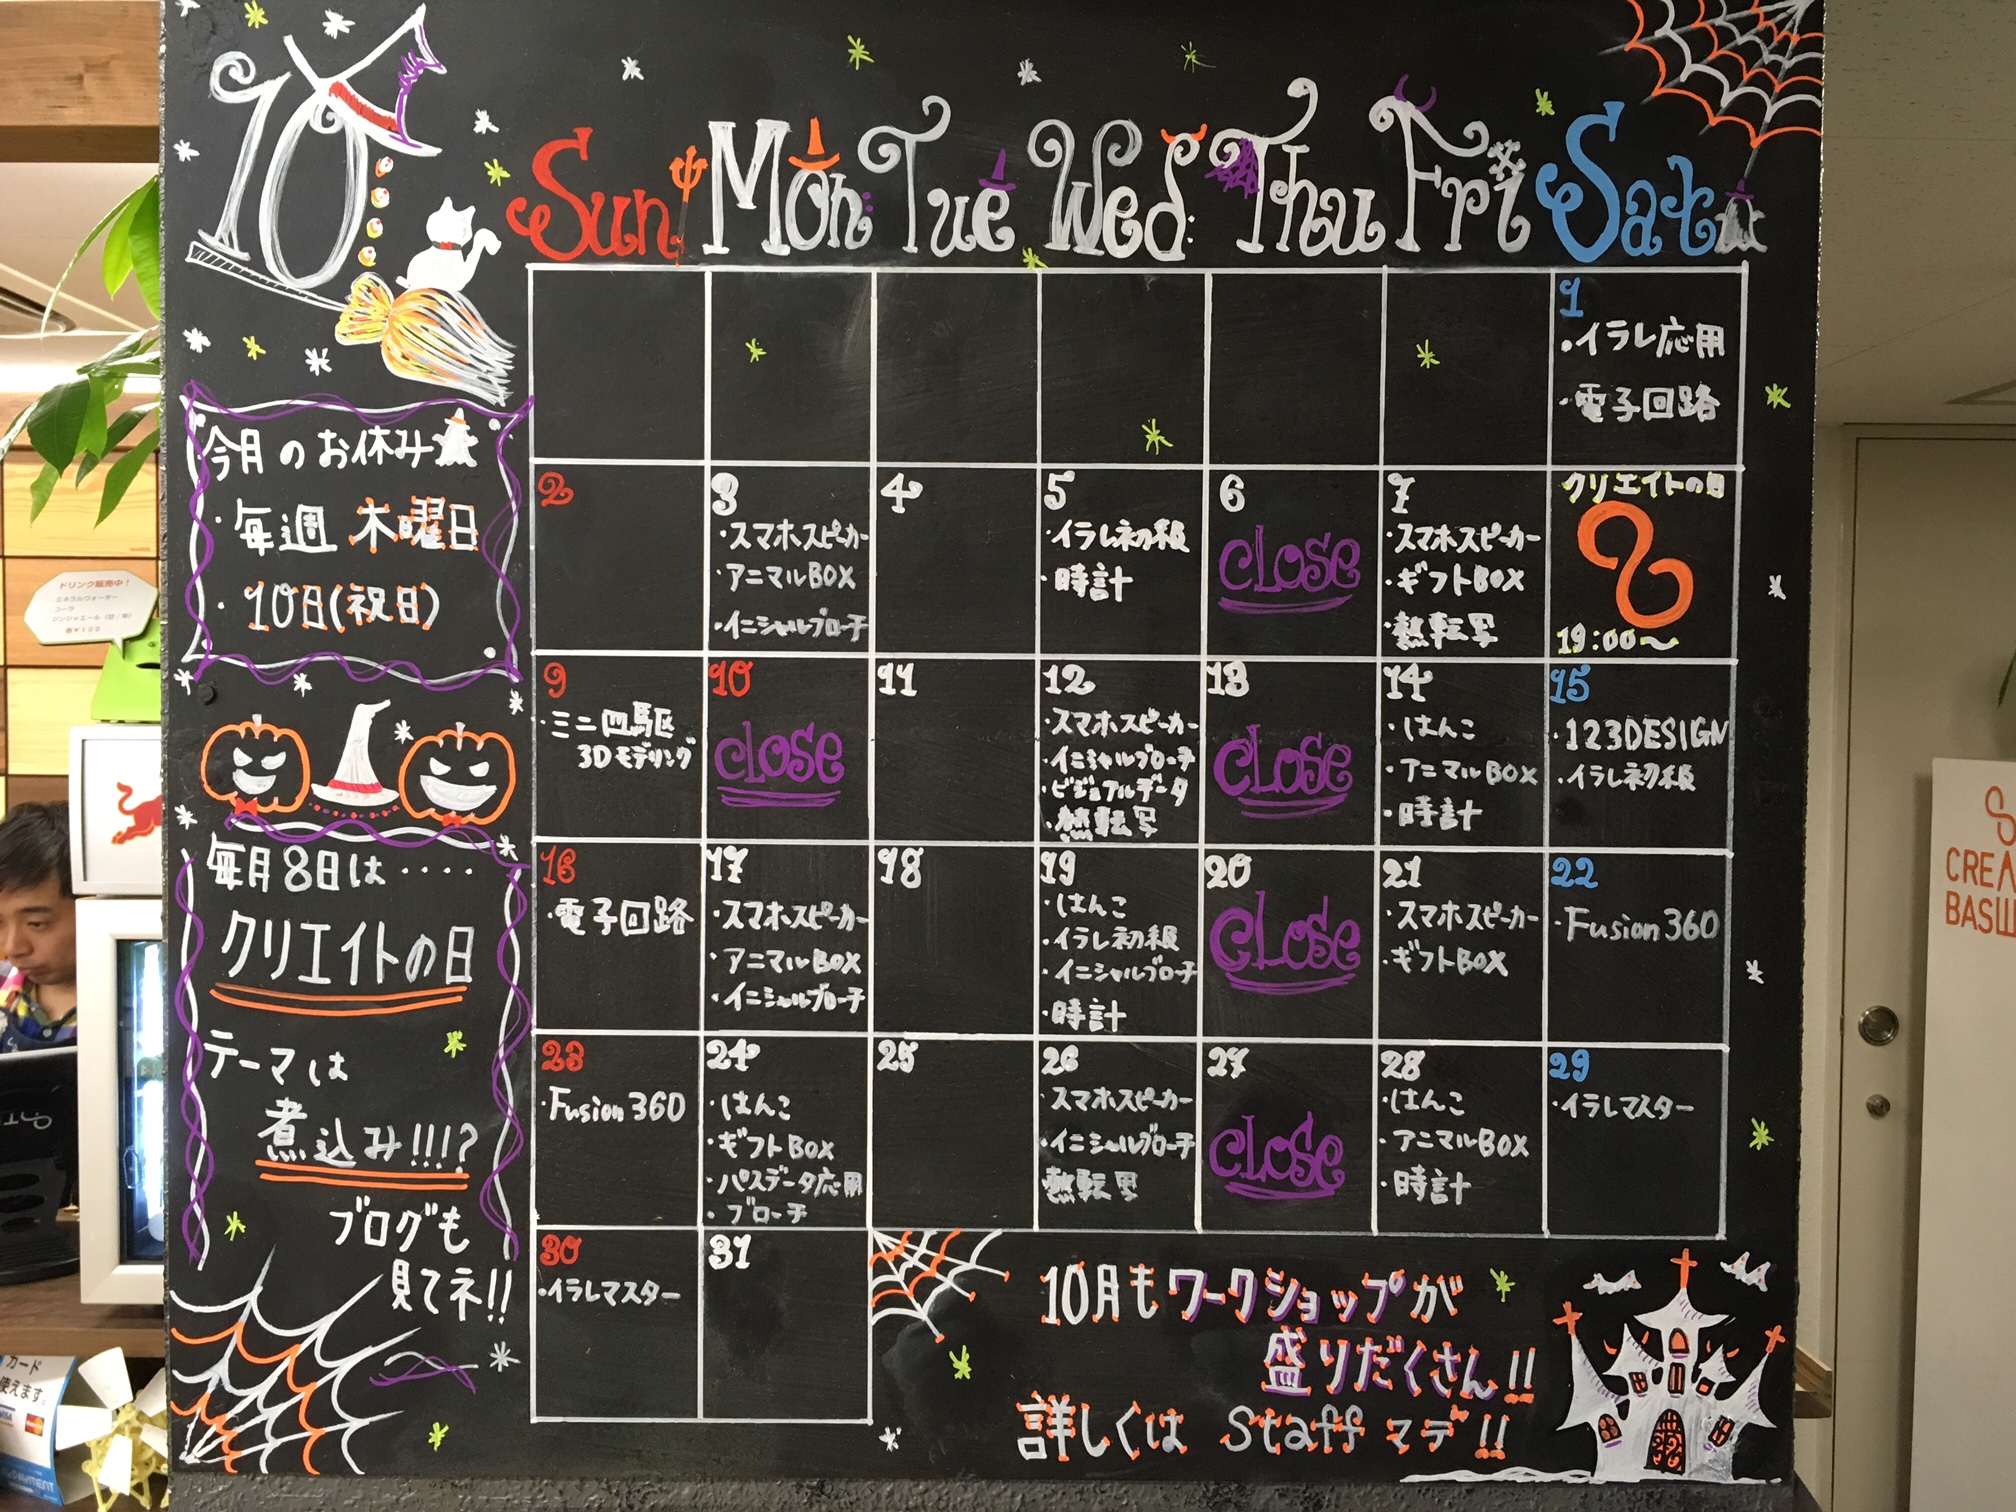 10
Sun Mon Tue Wed Thu Fri Sat
今月のお休み
・毎週 木曜日
・10日(祝日)
毎月8日は‥‥
クリエイトの日
テーマは
煮込み!!!?
ブログも
見てネ!!
1
・イラレ応用
・電子回路
2
3
・スマホスピーカー
・アニマルBOX
・イニシャルブローチ
4
5
・イラレ初級
・時計
6
CLOSE
7
・スマホスピーカー
・ギフトBOX
・熱転写
クリエイトの日
8
19:00〜
9
・ミニ四駆
3Dモデリング
10
CLOSE
11
12
・スマホスピーカー
・イニシャルブローチ
・ビジュアルデータ
・熱転写
13
CLOSE
14
・はんこ
・アニマルBOX
・時計
15
・123DESIGN
・イラレ初級
16
・電子回路
17
・スマホスピーカー
・アニマルBOX
・イニシャルブローチ
18
19
・はんこ
・イラレ初級
・イニシャルブローチ
・時計
20
CLOSE
21
・スマホスピーカー
・ギフトBOX
22
・Fusion360
23
・Fusion360
24
・はんこ
・ギフトBOX
・パスデータ応用
・ブローチ
25
26
スマホスピーカー
・イニシャルブローチ
熱転写
27
CLOSE
28
・はんこ
・アニマルBOX
・時計
29
・イラレマスター
30
・イラレマスター
31
10月もワークショップが
盛りだくさん!!
詳しくは Staffマデ!!
ドリンク販売中!
・ミネラルウォーター
・コーラ
・ジンジャエール
カード
使えます。
VISA
CREA
BASE